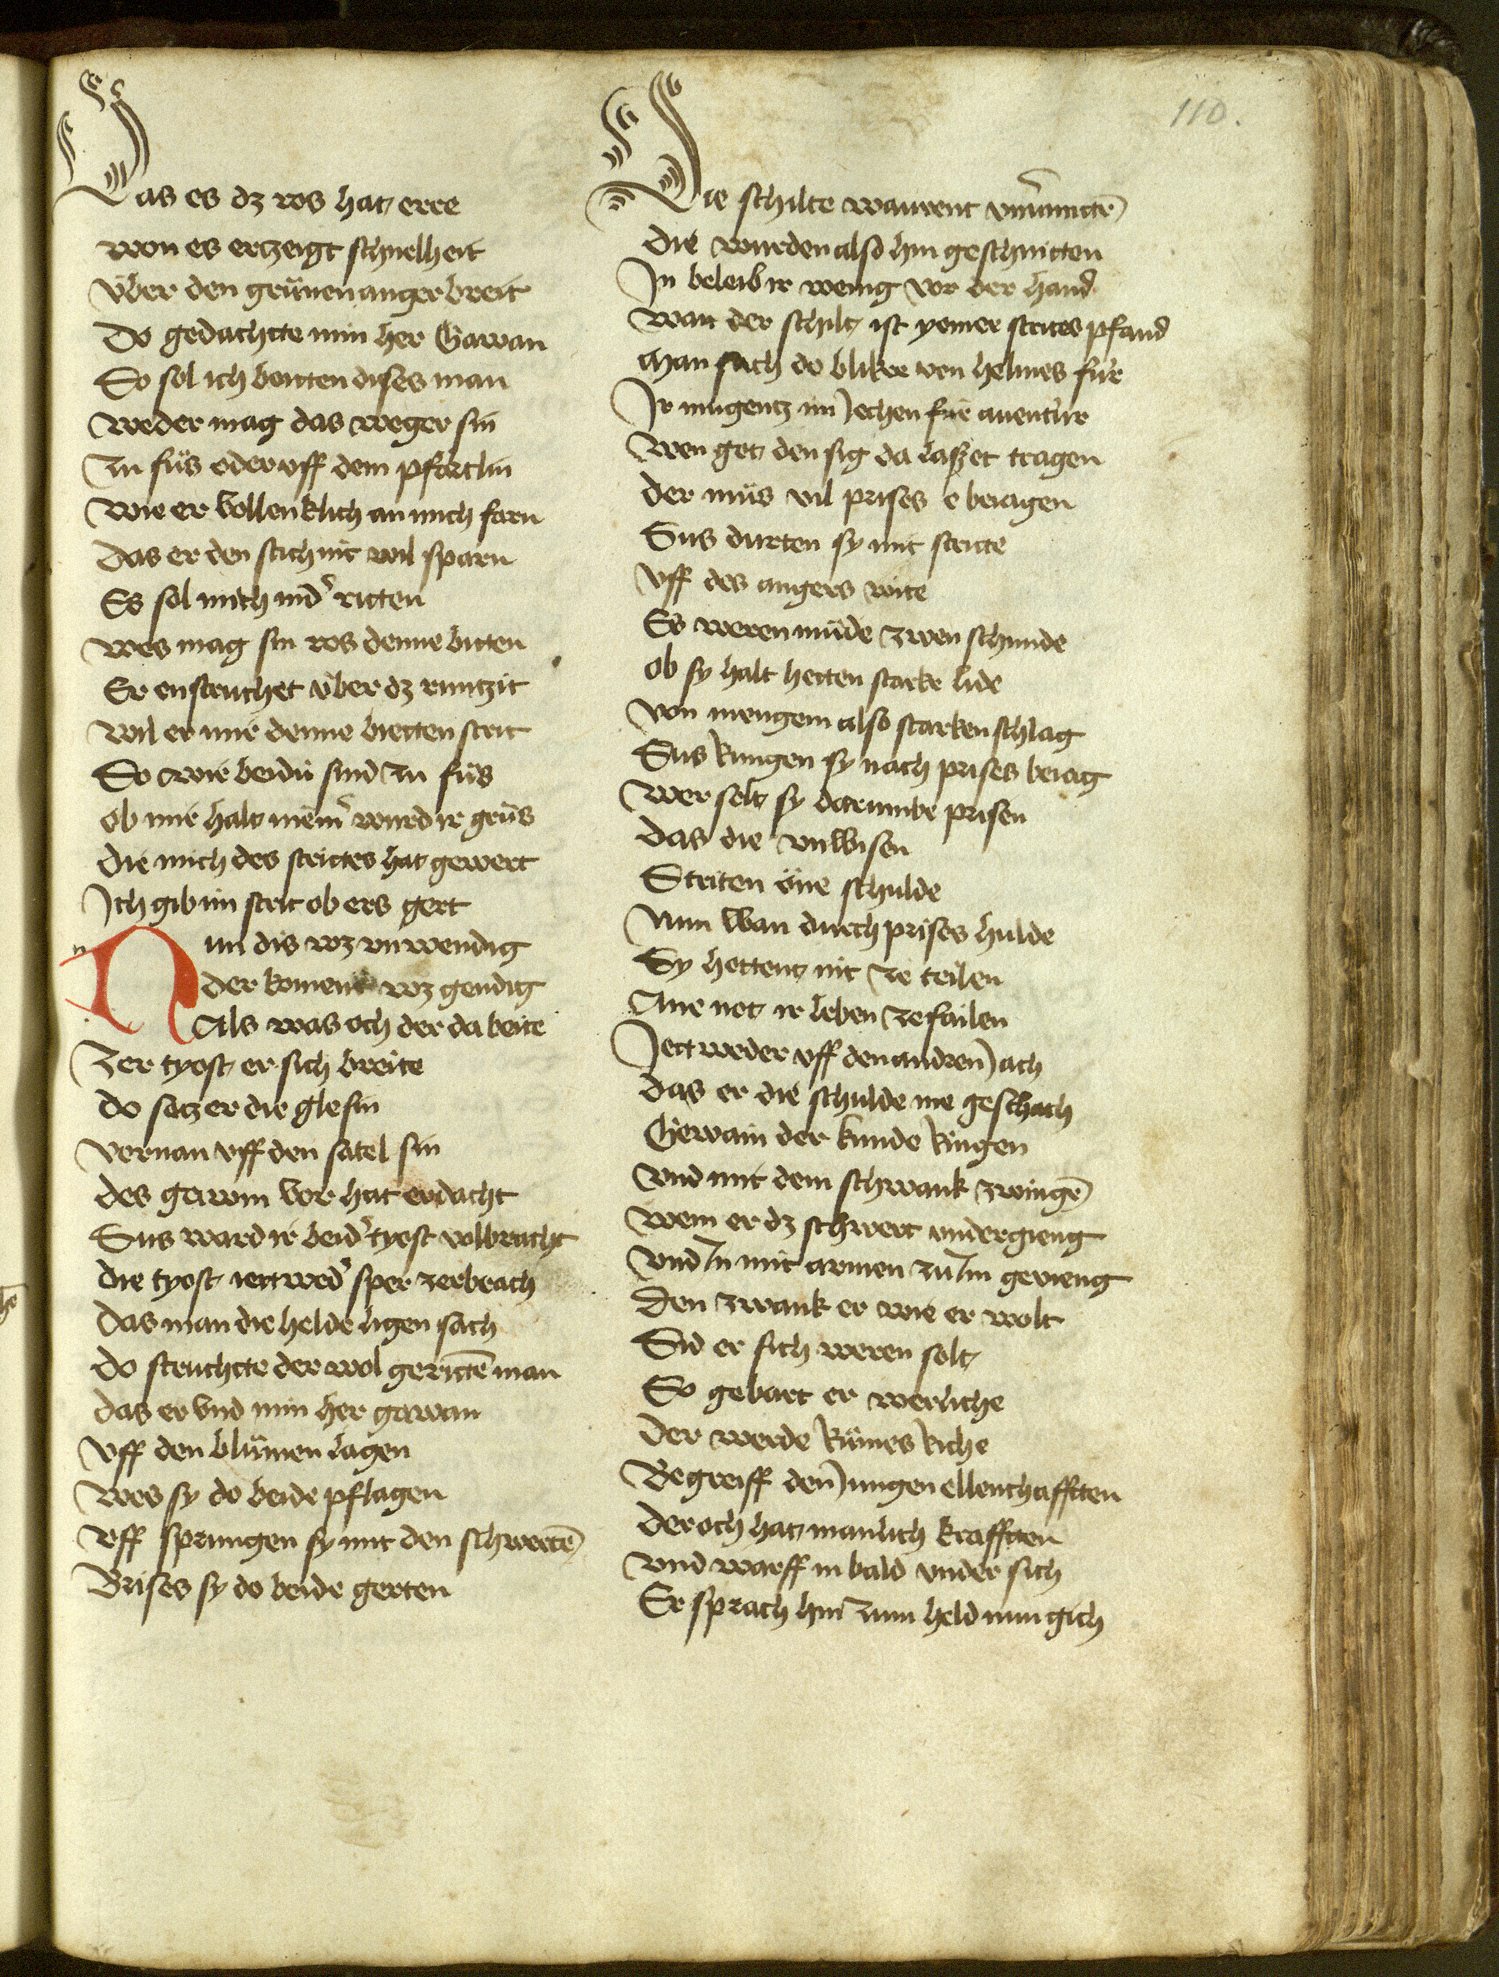 110.
Das es dz ros hat erre
won es erzeigt schnelheit
Vber den grünen anger breit
Do gedachtte min her Gawan
So sol ich beitten dises man
weder mag das weger sin
Zu füs oder vff dem pfärtlin
wie er vollenklich an mich farn
Das er den stich nit wil sparn
Es sol mich nidˀ ritten
wes mag sin ros denne bitten
Er enstruchet v́ber dz runtzit
wil er mir denne bietten strit
So wir beidu sind zu füs
ob mir halt niemˀ wurd ir grüs
die mich des strittes hat gewert
Ich gib im strit ob ers gert
n
Nun dis wz vnwendig
der koment wz gendig
Als was och der da beite
Zer tyost er sich breite
do satz er die glefin
vornan vff den satel sin
des gawin vor hat erdacht
Sus ward ir beidˀ tyost volbracht
die tyost iettwedˀ sper zerbrach
das man die helde ligen sach
do struchtte der wol gerittē man
das er vnd min her gawan
Vff den blümen lagen
wes sy do beide pflagen
vff sprungen sy mit den schwertē
Brises sy do beide gerten
Die schilte waurent vnvermittē
die wurden also hin geschnitten
In beleib ir wenig vor der hand
wan der schilt ist yemer strites pfand
man sach do blikke von helmes fúr
Ir mugentz im iechen für auentúr
wen got den sig da laszet tragen
der müs vil prises e beiagen
Sus durten sy mit stritte
Vff des angers wite
Es weren müde zwen schmide
ob sy halt hetten starke lide
von mengem also starken schlag
Sus rungen sy nach prises beiag
wer solt sy darumbe prisen
das die vnwisen
Striten öne schulde
Nun wan durch prises hulde
Sy hettent nit ze teilen
Ane not ir leben ze failen
Iettweder vff den andren iach
das er die schulde nie geschach
Gewain der kunde ringen
vnd mit dem schwank zwingē
wem er dz schwert vndergieng
vnd In mit armen zu Im gevieng
den zwank er wie er wolt
Sid er sich weren solt
So gebart er werliche
der werde kümes riche
Begreiff den iungen ellenthafftten
der och hat manlich krafften
vnd warff in bald vnder sich
Er sprach hin zum held nun gich